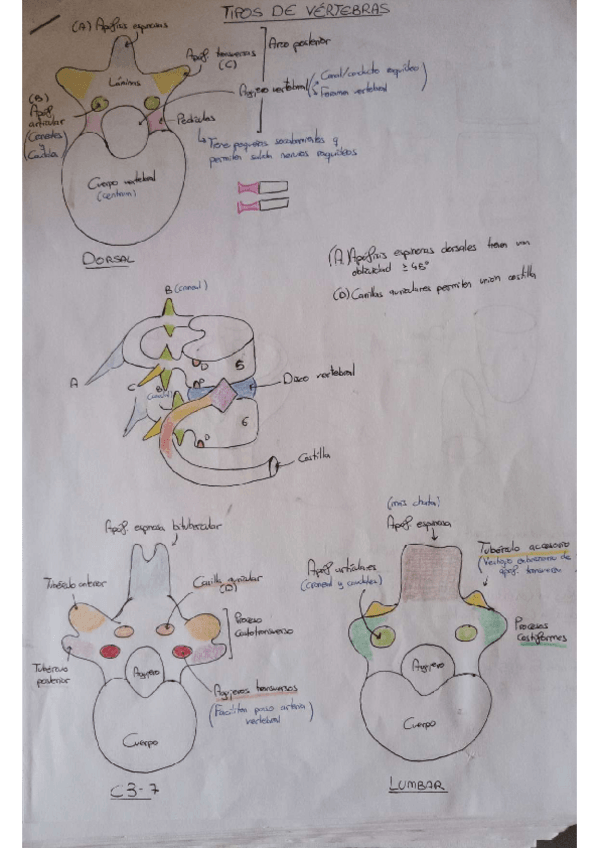 TIPOS DE VÉRTEBRAS
(A) Apófisis espinosas
Apóf. transversas
(C)
Arco posterior
Láminas
Agujero vertebral
Canal/conducto raquídeo
Foramen vertebral
(B)
Apóf.
articular
(Craneales
y
Caudales)
Pedículos
Tiene pequeños socavamientos y
permiten salida nervios raquídeos
Cuerpo vertebral
(centrum)
DORSAL
(A) Apófisis espinosas dorsales tienen una
oblicuidad ≥ 45°
(D) Carillas auriculares permiten unión costilla
B (craneal)
A
C
B
D
5
D
Disco vertebral
6
D
Costilla
Apóf. espinosa bitubercular
Tubérculo anterior
Carilla auricular
(D)
Proceso
costotransverso
Tubérculo
posterior
Agujero
Agujeros transversos
(Facilitan paso arteria
vertebral)
Cuerpo
C3-7
(más chata)
Apóf. espinosa
Tubérculo accesorio
(Vestigio embrionario de
apóf. transversa
Apóf articulares
(Craneal y caudales)
Procesos
Costiformes
Agujero
Cuerpo
LUMBAR